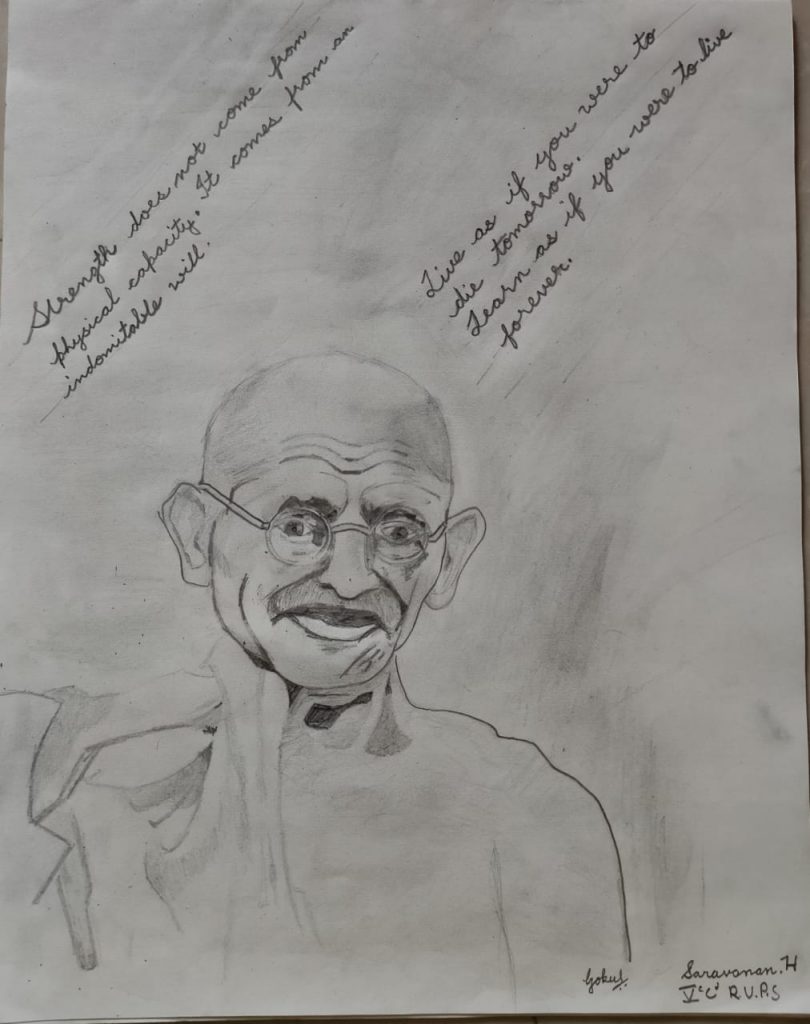 Strength does not come from
physical capacity. It comes from an
indomitable will.
Live as if you were to
die tomorrow.
Learn as if you were to live
forever.
Gokul
Saravanan.H
V 'C' R.V.P.S